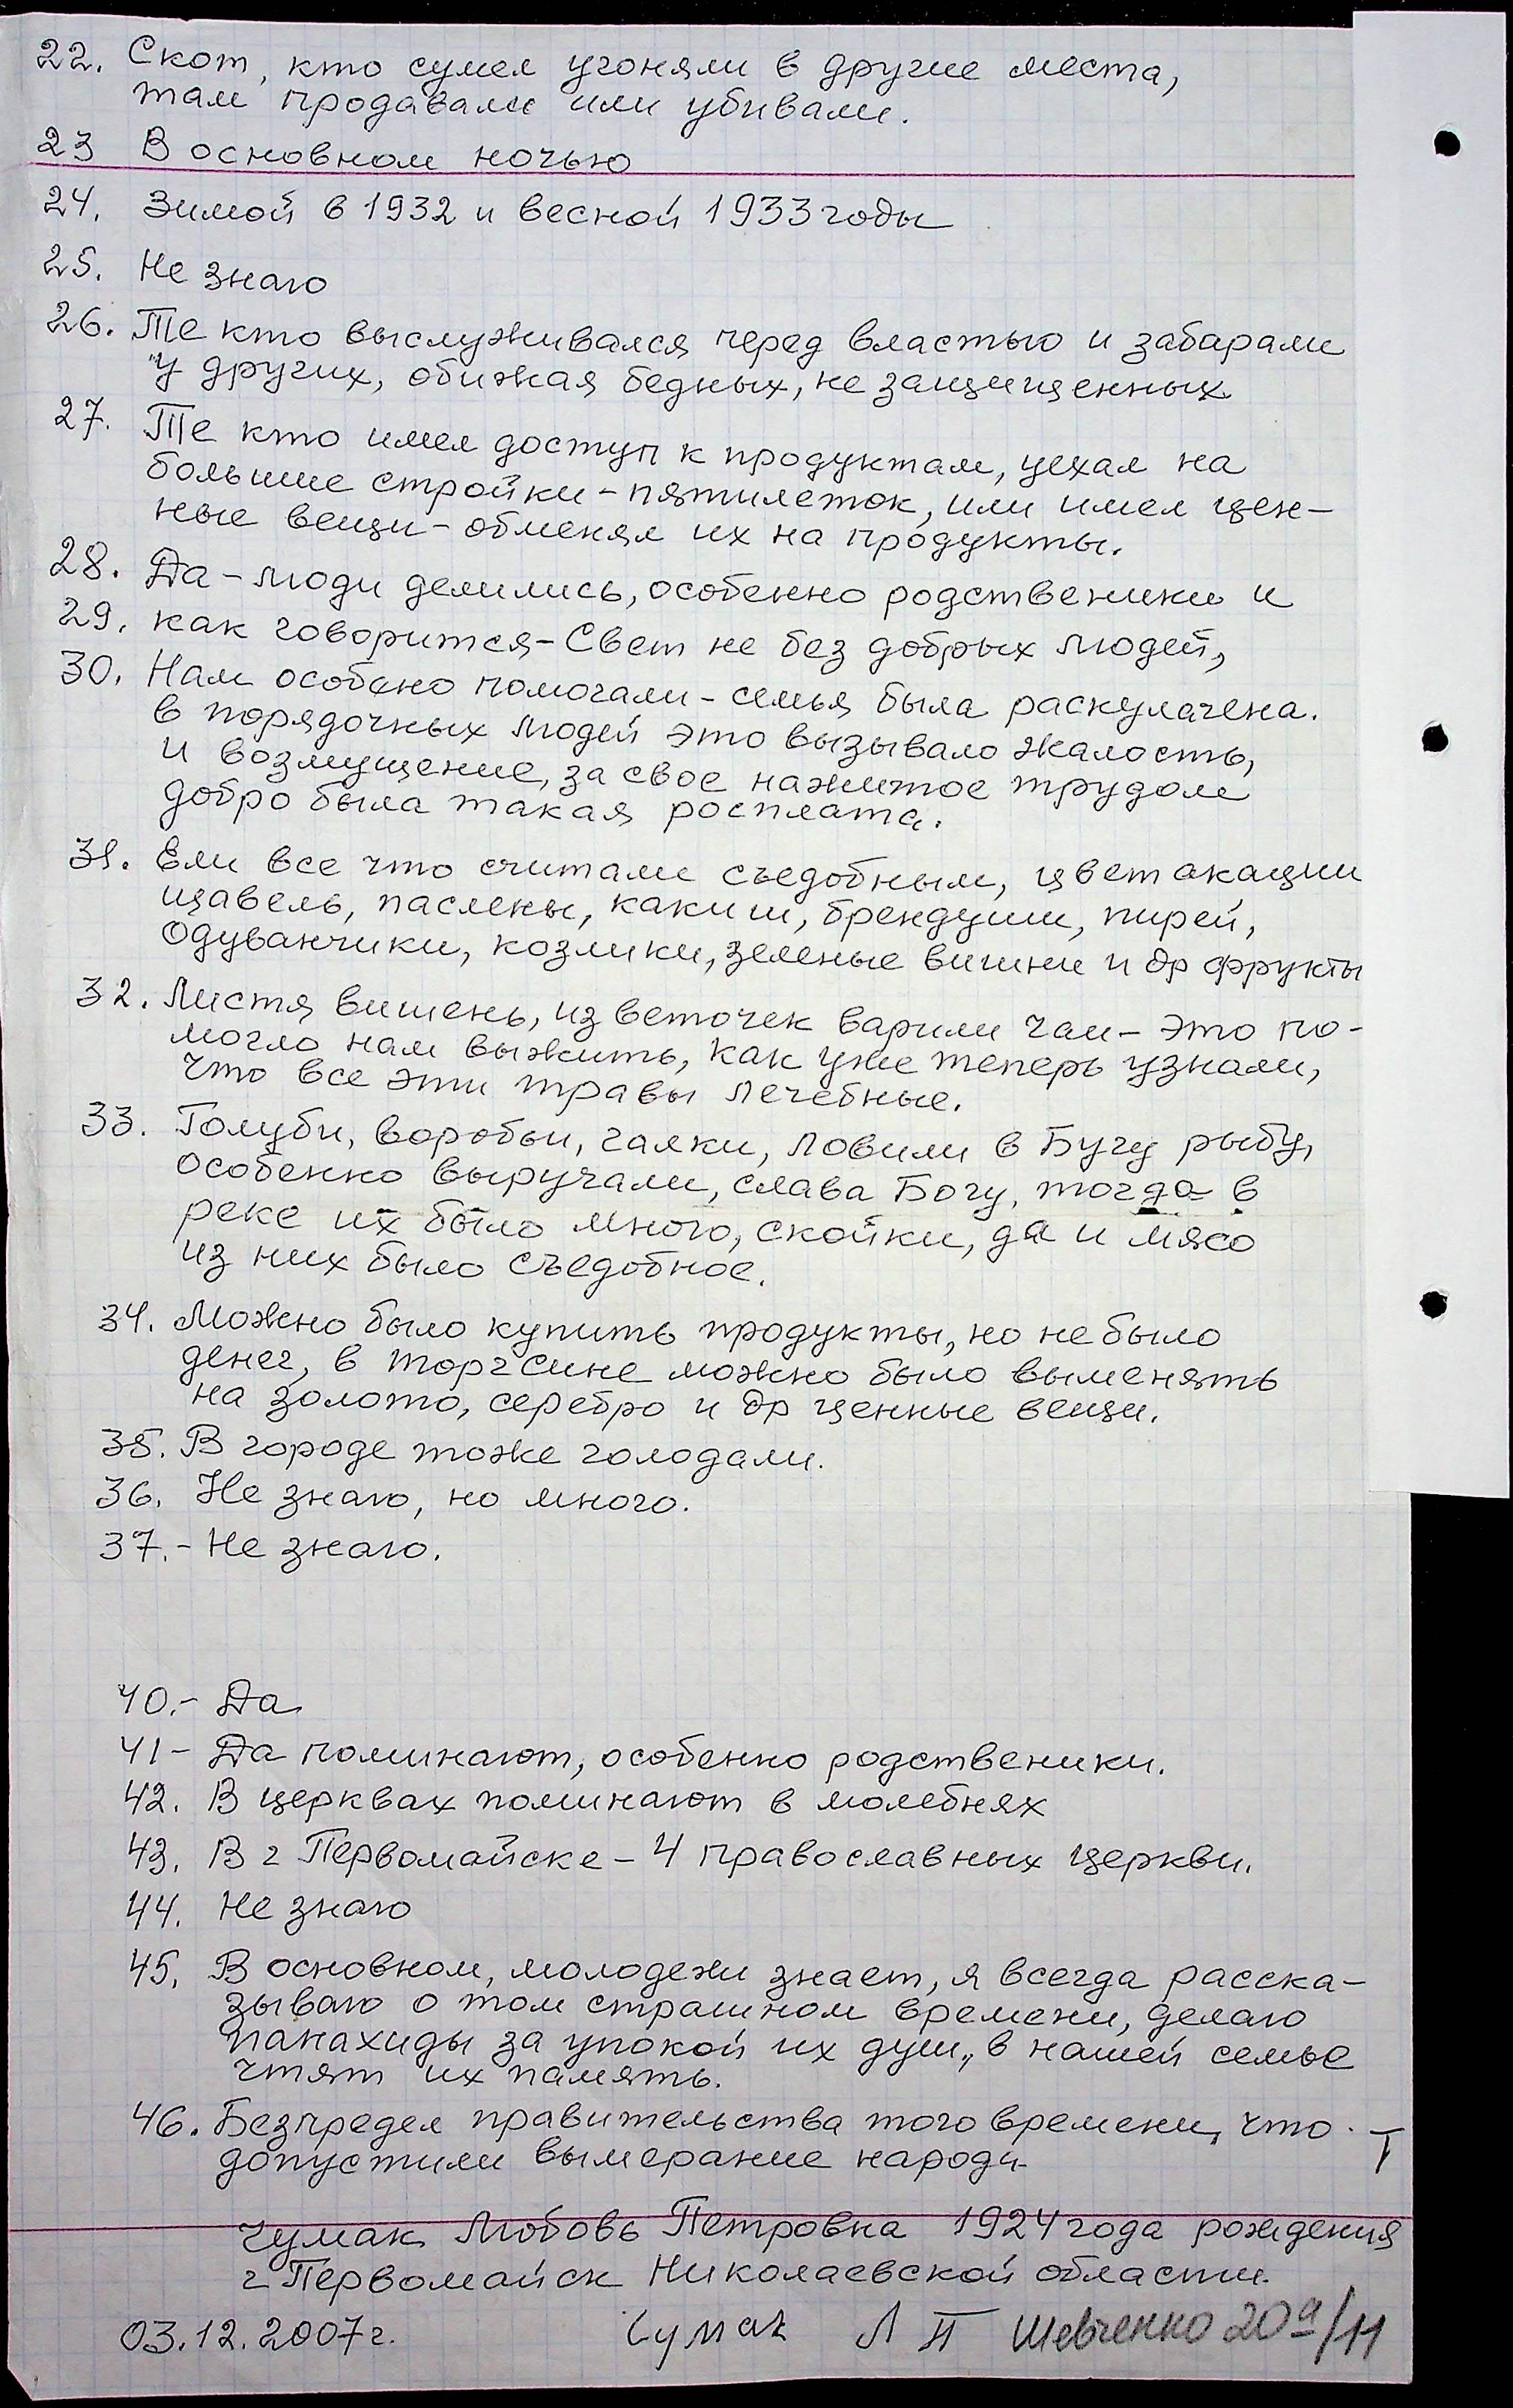 22. Скот, кто сумел угоняли в другие места,
там продавали или убивали.
23 В основном ночью
24. Зимой в 1932 и весной 1933 годы
25. Не знаю
26. Те кто выслуживался перед властью и забарали
у других, обижая бедных, не защищенных
27. Те кто имел доступ к продуктам, уехал на
большие стройки - пятилеток, или имел цен-
ные вещи - обменял их на продукты.
28. Да - люди делились, особенно родственики и
29. как говорится - Свет не без добрых людей,
30. Нам особено помогали - семья была раскулачена.
в порядочных людей это вызывало жалость,
и возмущение, за свое нажитое трудом
добро была такая росплата.
31. Ели все что считали съедобным, цвет акации
щавель, паслены, какиш, брендуши, пирей,
одуванчики, козлики, зеленые вишни и др фрукты
32. Листя вишень, из веточек варили чаи - это по-
могло нам выжить, как уже теперь узнали,
что все эти травы лечебные.
33. Голуби, воробьи, галки, ловили в Бугу рыбу,
особенно выручали, слава Богу, тогда в
реке их было много, скойки, да и мясо
из них было съедобное.
34. Можно было купить продукты, но не было
денег, в торгсине можно было выменять
на золото, серебро и др ценные вещи.
35. В городе тоже голодали.
36. Не знаю, но много.
37. - Не знаю.
40. - Да
41 - Да поминают, особенно родственики.
42. В церквах поминают в молебнях
43. В г Первомайске - 4 православных церкви.
44. Не знаю
45. В основном, молодежи знает, я всегда расска-
зываю о том страшном времени, делаю
панахиды за упокой их душ, в нашей семье
чтят их память.
46. Безпредел правительства того времени, что
допустили вымерание народа
Чумак Любовь Петровна 1924 года рождения
г Первомайск Николаевской области
03.12.2007г. Чумак Л П Шевченко 20а/11